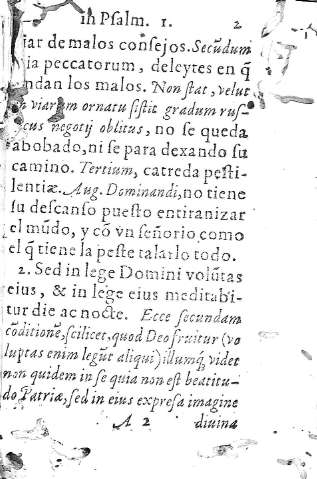 in Psalm. 1. 2
iar de malos consejos. Secũdum
ia peccatorum, deleytes en q̃
ndan los malos. Non stat, velut
n viarum ornatu sistit gradum rus-
cus negotij oblitus, no se queda
abobado, ni se para dexando su
camino. Tertium, catreda pesti-
lentiæ. Aug. Dominandi, no tiene
su descanso puesto entiranizar
el mũdo, y cõ vn señorio como
el q̃ tiene la peste talarlo todo.
2. Sed in lege Domini volũtas
eius, & in lege eius meditabi-
tur die ac nocte. Ecce secundam
cõditionẽ, scilicet, quod Deo fruitur (vo
luptas enim legũt aliqui) illumq́; videt
non quidem in se quia non est beatitu-
do Patriæ, sed in eius expresa imagine
A 2 diuina